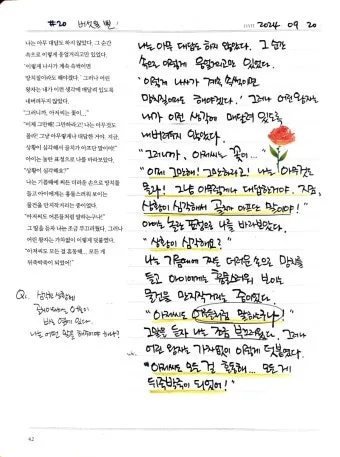 #20 버섯을 뺀!
2024 09 20
나는 아무 대답도 하지 않았다. 그 순간
속으로 이렇게 웅얼거리고만 있었다.
'이렇게 나사가 계속 속썩이면
망치질이라도 해야겠다.' 그러나 어린
왕자는 내가 이런 생각에 매달려 있도록
내버려두지 않았다.
"그러니까, 아저씨는 꽃이…"
"이제 그만해! 그만하라고! 나는 아무것도
몰라! 그냥 아무렇게나 대답한 거야. 지금,
상황이 심각해서 골치가 아프단 말이야!"
아이는 놀란 표정으로 나를 바라보았다.
"상황이 심각해요?"
나는 기름때에 찌든 더러운 손으로 망치를
들고 아이에게는 흉물스러워 보이는
물건을 만지작거리는 중이었다.
"아저씨도 어른들처럼 말하는구나!"
그 말을 듣자 나는 조금 부끄러웠다. 그러나
어린 왕자는 가차없이 이렇게 덧붙였다.
"아저씨도 모든 걸 혼동해… 모든 게
뒤죽박죽이 되었어!"
나는 어떤
42
나는 아무 대답도 하지 않았다. 그 순간
속으로 이렇게 웅얼거리고만 있었다.
'이렇게 나사가 계속 속썩이면
망치질이라도 해야겠다.' 그러나 어린 왕자는
내가 이런 생각에 매달려 있도록
내버려두지 않았다.
"그러니까, 아저씨는 꽃이…"
"이제 그만해! 그만하라고! 나는 아무것도
몰라! 그냥 아무렇게나 대답한거야. 지금,
상황이 심각해서 골치가 아프단 말이야!"
아이는 놀란 표정으로 나를 바라보았다.
"상황이 심각해요?"
나는 기름때에 찌든 더러운 손으로 망치를
들고 아이에게는 흉물스러워 보이는
물건을 만지작거리는 중이었다.
"아저씨도 어른들처럼 말하는구나!"
그 말을 듣자 나는 조금 부끄러웠다. 그러나
어린 왕자는 가차없이 이렇게 덧붙였다.
"아저씨도 모든 걸 혼동해… 모든 게
뒤죽박죽이 되었어!"